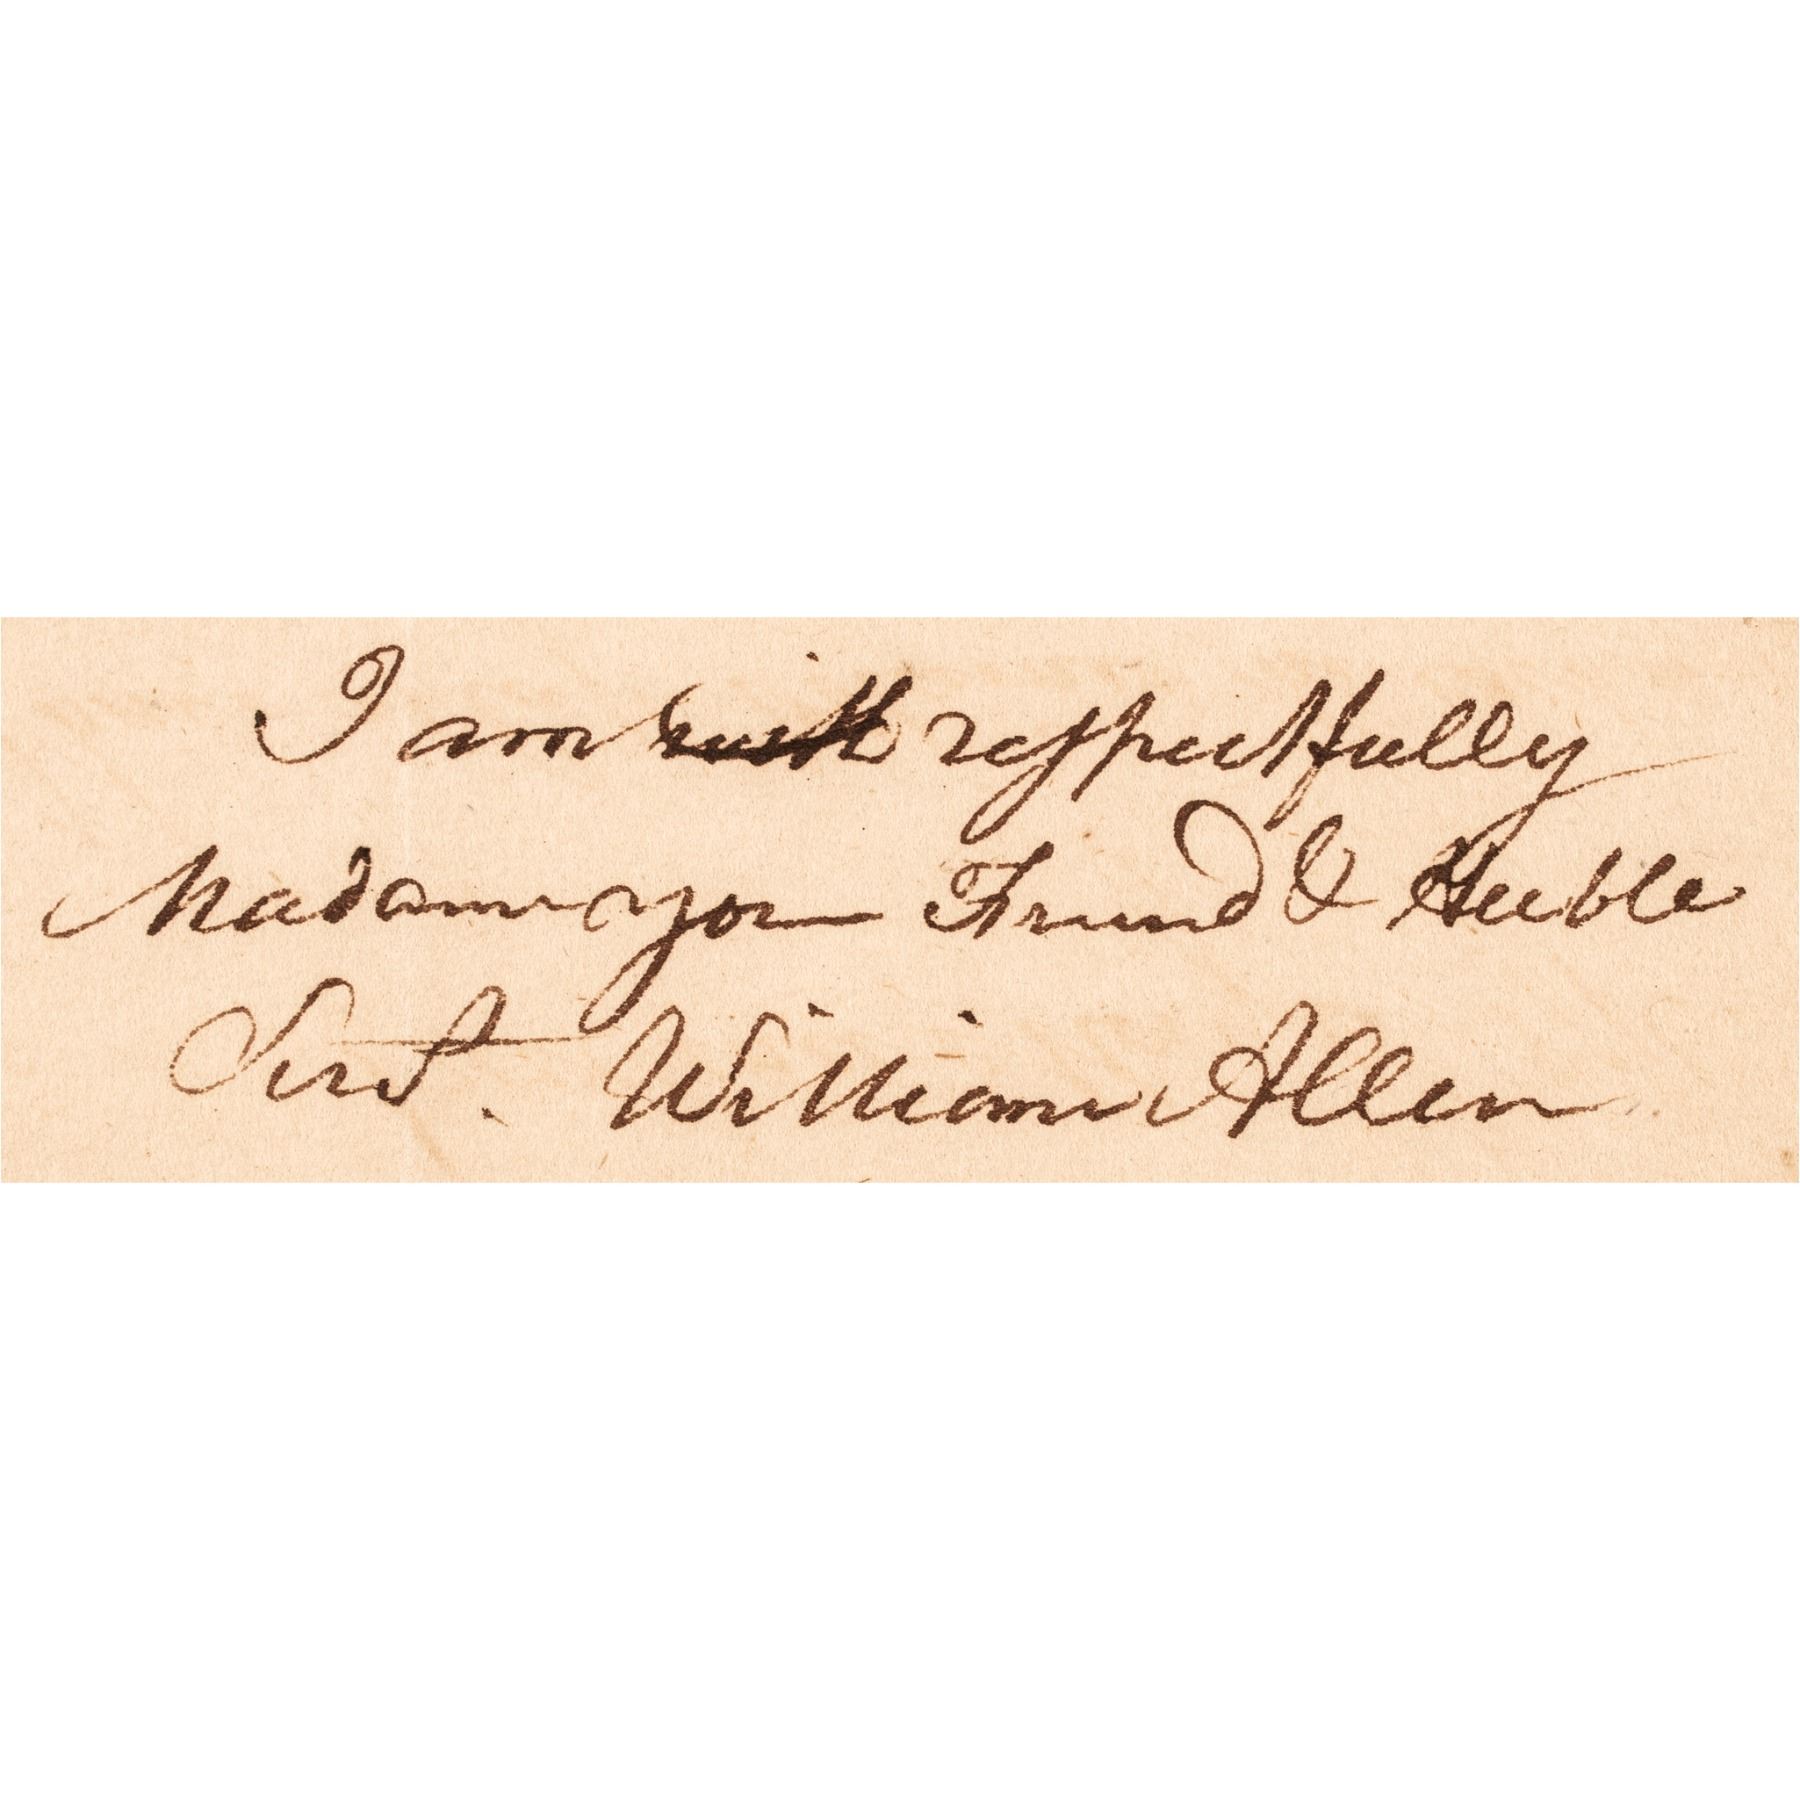 I am with respectfully
Madam your Friend & Huble
Servt. William Allen